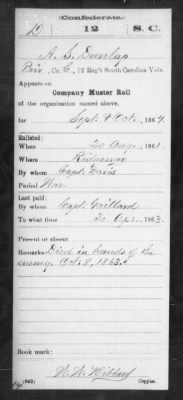 Confederate.
D 12 S.C.
A. S. Dunlap
Pvt., Co. C, 12 Reg't South Carolina Vols.
Appears on
Company Muster Roll
of the organization named above,
for Sept. & Oct., 1864.
Enlisted:
When 20 Aug., 1861.
Where Ridgeway
By whom Capt. Davis
Period War
Last paid:
By whom Capt.
To what time 30 Apr., 1863.
Present or absent
Remarks: Died in hands of the
enemy Oct. 8, 1863.
Book mark:
W. W.
(642) Copyist.